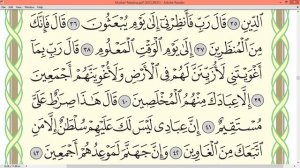 ٱلدِّينِ ٣٥ قَالَ رَبِّ فَأَنظِرْنِىٓ إِلَىٰ يَوْمِ يُبْعَثُونَ ٣٦ قَالَ فَإِنَّكَ
مِنَ ٱلْمُنظَرِينَ ٣٧ إِلَىٰ يَوْمِ ٱلْوَقْتِ ٱلْمَعْلُومِ ٣٨ قَالَ رَبِّ بِمَآ
أَغْوَيْتَنِى لَأُزَيِّنَنَّ لَهُمْ فِى ٱلْأَرْضِ وَلَأُغْوِيَنَّهُمْ أَجْمَعِينَ
٣٩ إِلَّا عِبَادَكَ مِنْهُمُ ٱلْمُخْلَصِينَ ٤٠ قَالَ هَـٰذَا صِرَٰطٌ عَلَىَّ
مُسْتَقِيمٌ ٤١ إِنَّ عِبَادِى لَيْسَ لَكَ عَلَيْهِمْ سُلْطَـٰنٌ إِلَّا مَنِ
ٱتَّبَعَكَ مِنَ ٱلْغَاوِينَ ٤٢ وَإِنَّ جَهَنَّمَ لَمَوْعِدُهُمْ أَجْمَعِينَ ٤٣